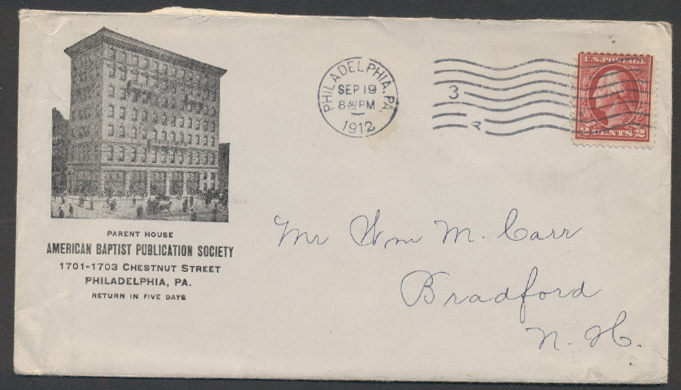 PARENT HOUSE
AMERICAN BAPTIST PUBLICATION SOCIETY
1701-1703 CHESTNUT STREET
PHILADELPHIA, PA.
RETURN IN FIVE DAYS
PHILADELPHIA, PA.
SEP 19
8 PM
1912
3
U.S. POSTAGE
2 CENTS 2
Mr Wm M. Carr
Bradford
N. H.